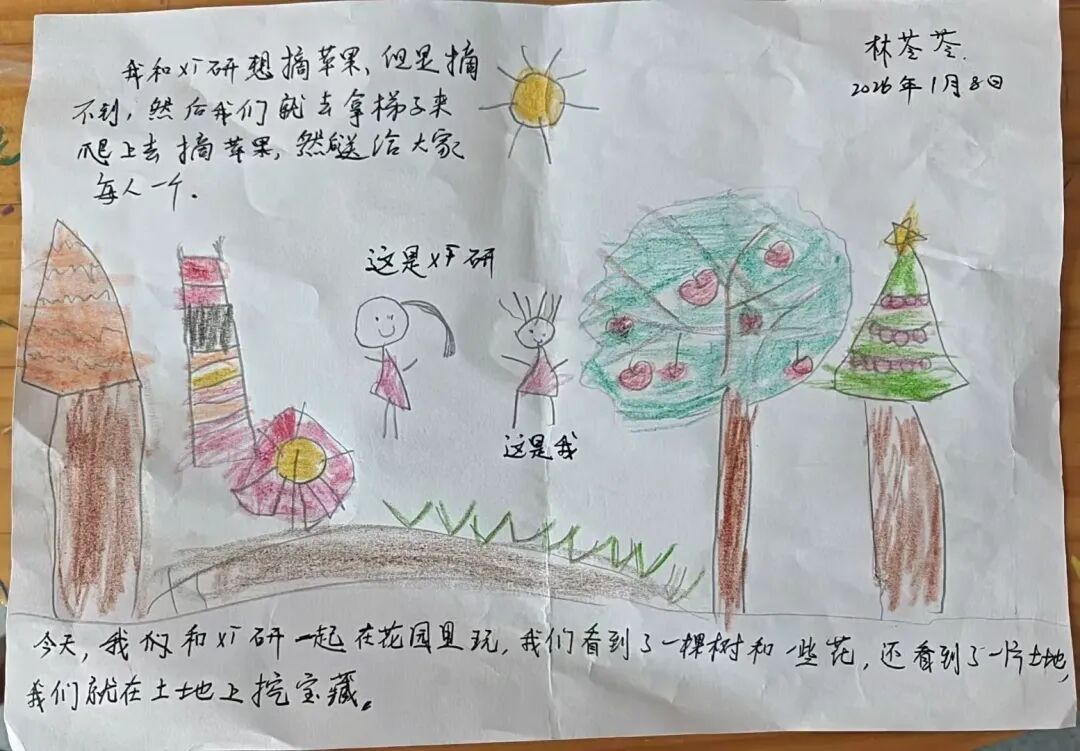 林
2026年1月8日
我和 研想摘苹果，但是摘
不到，然后我们就去拿梯子来
爬上去摘苹果，然后送给大家
每人一个.
这是 研
这是我
今天，我们和 研一起在花园里玩，我们看到了一棵树和一些花，还看到了一片土地，
我们就在土地上挖宝藏。